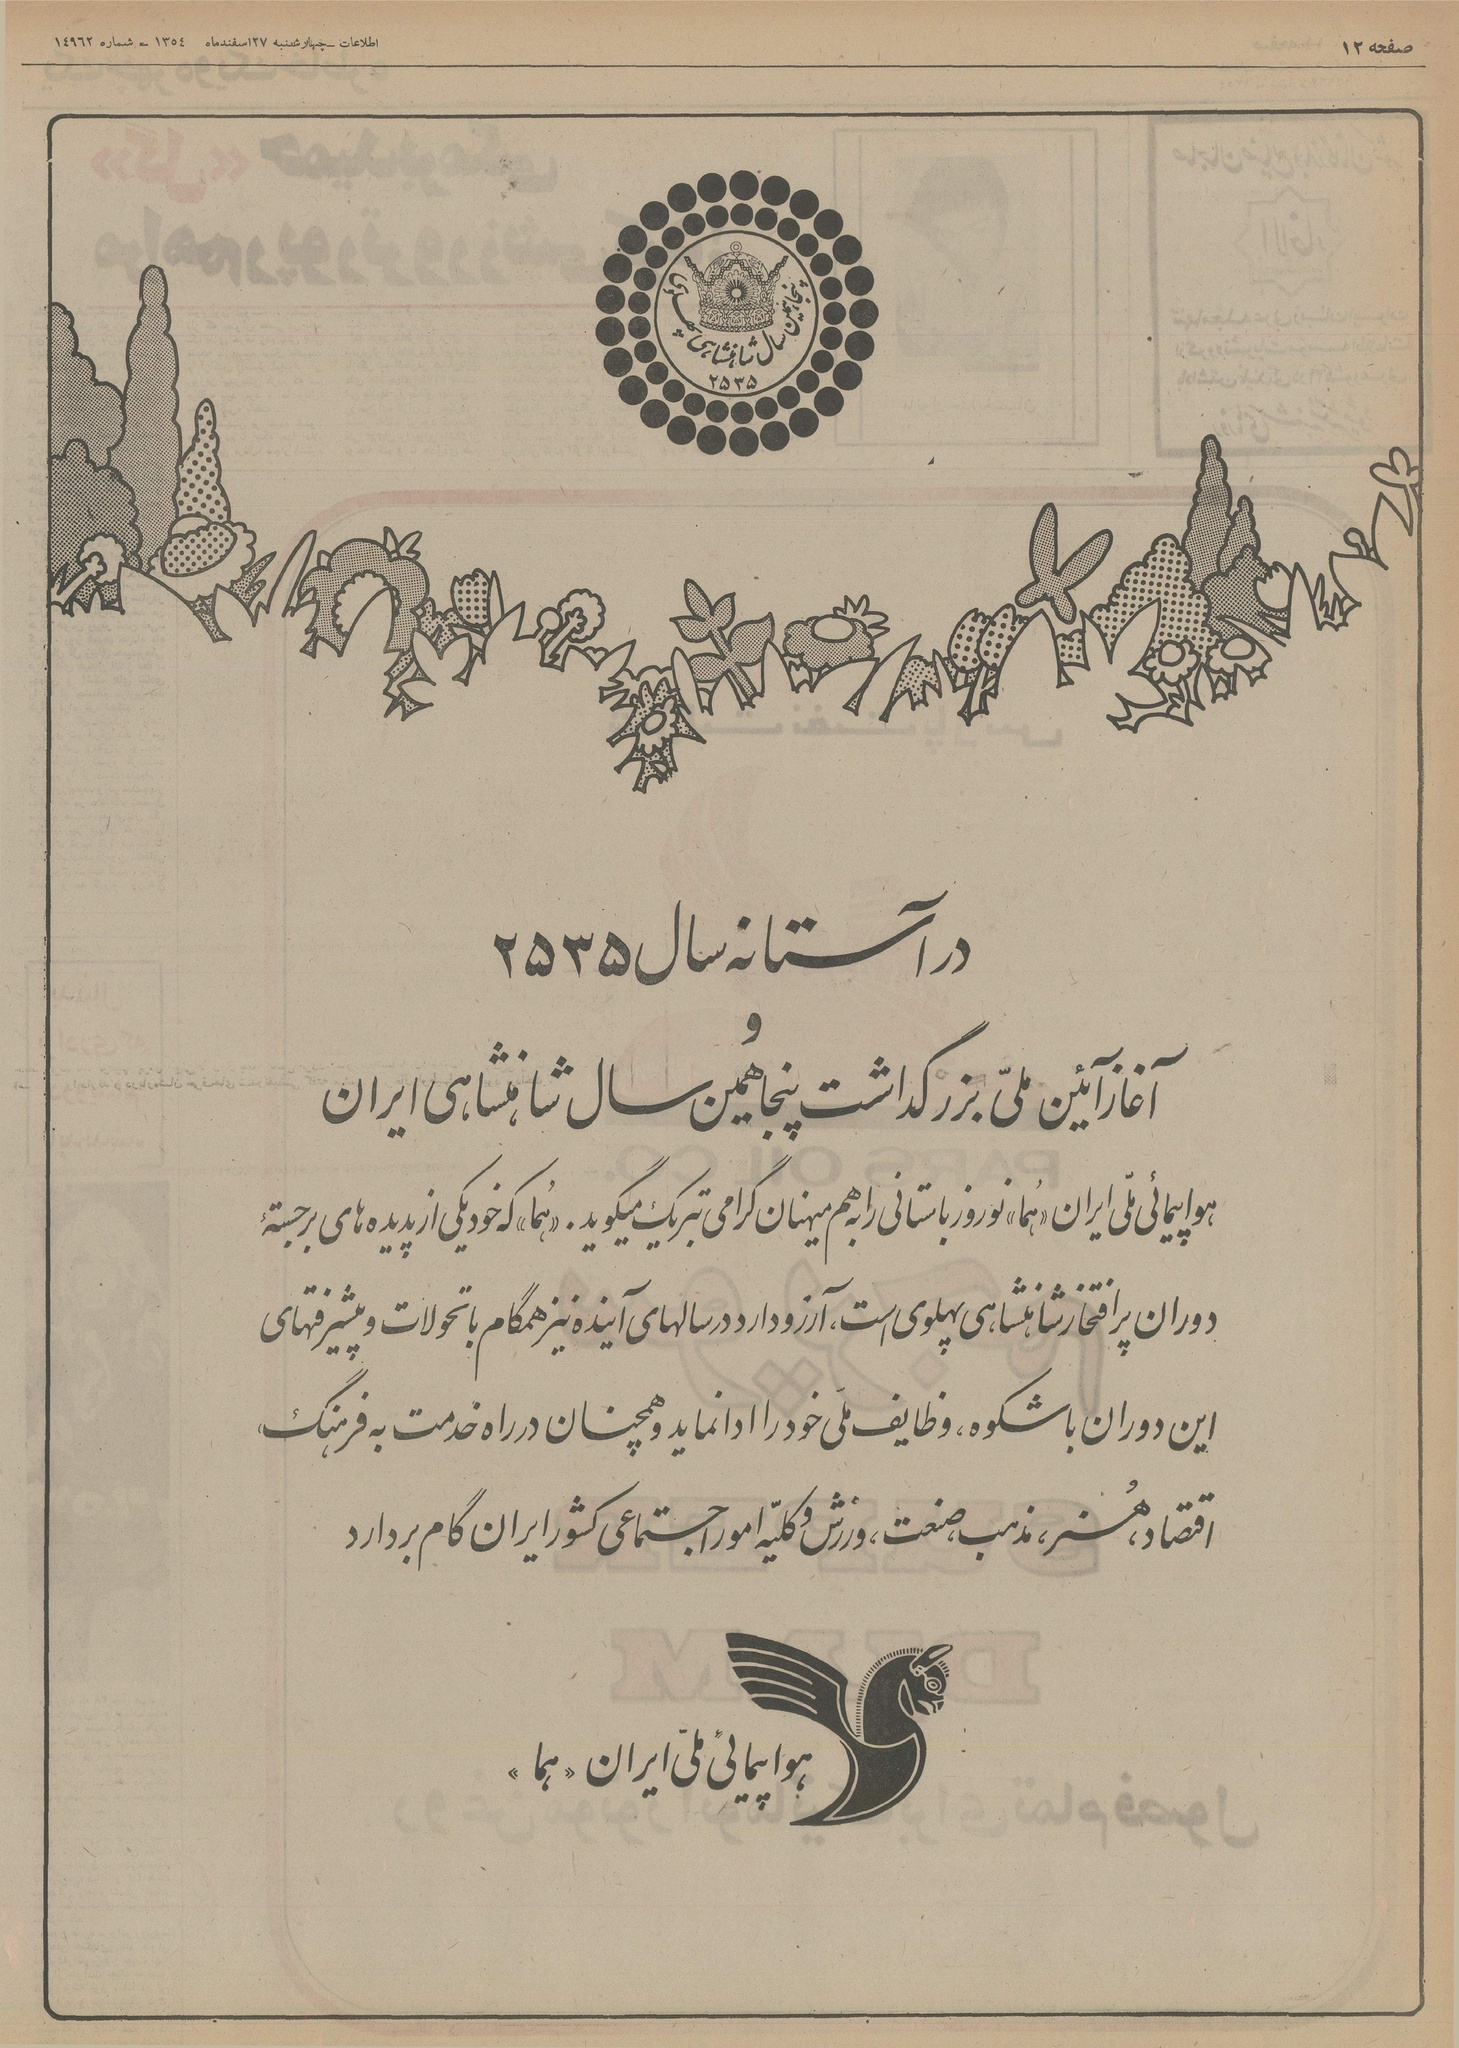 صفحه ۱۲
اطلاعات ـ چهارشنبه ۲۷ اسفندماه ۱۳۵٤ ـ شماره ۱٤۹٦۲
پنجاهمین سال شاهنشاهی پهلوی
۲۵۳۵
در آستانه سال ۲۵۳۵
و
آغاز آئین ملّی بزرگداشت پنجاهمین سال شاهنشاهی ایران
هواپیمائی ملّی ایران «هُما» نوروز باستانی را به هم میهنان گرامی تبریک میگوید. «هُما» که خود یکی از پدیده های برجستهٔ
دوران پر افتخار شاهنشاهی پهلوی است، آرزو دارد در سالهای آینده نیز همگام با تحولات و پیشرفتهای
این دوران با شکوه، وظایف ملی خود را ادا نماید و همچنان در راه خدمت به فرهنگ،
اقتصاد، هُنر، مذهب، صنعت، ورزش و کلیّه امور اجتماعی کشور ایران گام بردارد
هواپیمائی ملّی ایران «هما»